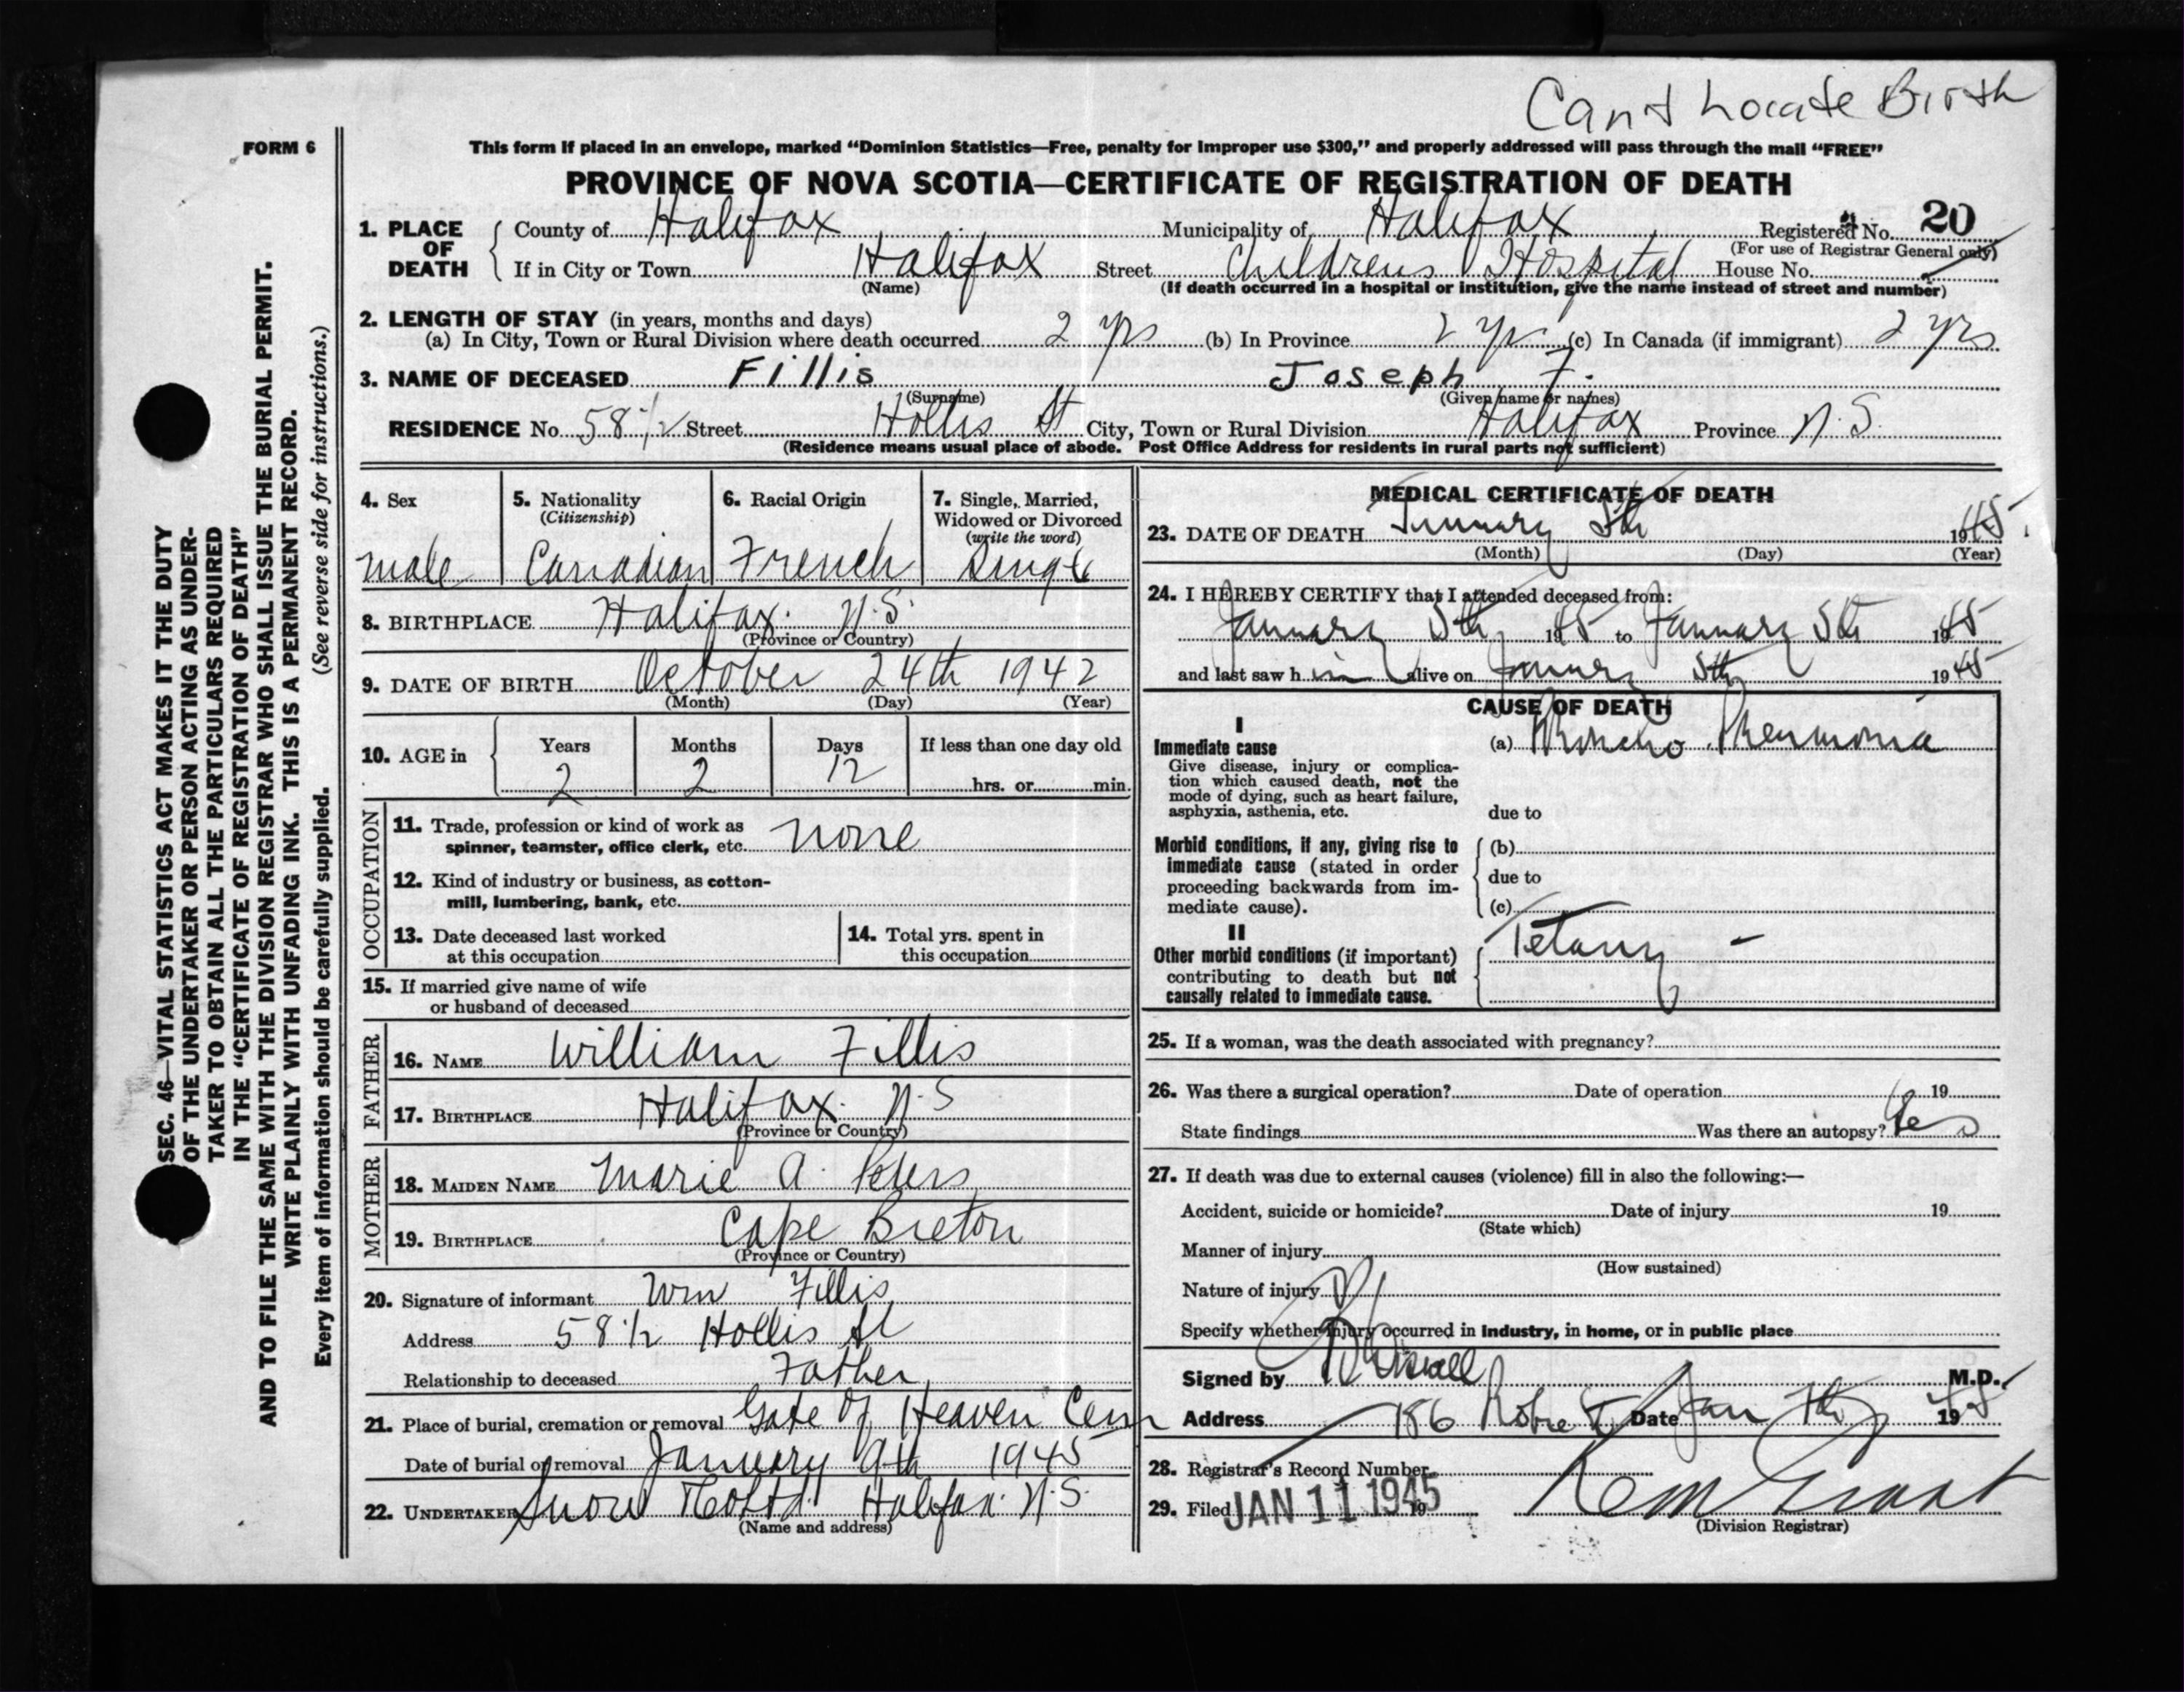 Can't Locate Birth
FORM 6
This form if placed in an envelope, marked "Dominion Statistics—Free, penalty for improper use $300," and properly addressed will pass through the mail "FREE"
PROVINCE OF NOVA SCOTIA—CERTIFICATE OF REGISTRATION OF DEATH
1. PLACE OF DEATH County of Halifax Municipality of Halifax Registered No. 20
(For use of Registrar General only)
If in City or Town Halifax Street Childrens Hospital House No.
(Name) (If death occurred in a hospital or institution, give the name instead of street and number)
2. LENGTH OF STAY (in years, months and days)
(a) In City, Town or Rural Division where death occurred 2 yrs (b) In Province 2 yr (c) In Canada (if immigrant) 2 yrs
3. NAME OF DECEASED Fillis Joseph F.
(Surname) (Given name or names)
RESIDENCE No. 58 1/2 Street Hollis St City, Town or Rural Division Halifax Province N.S.
(Residence means usual place of abode. Post Office Address for residents in rural parts not sufficient)
4. Sex
male
5. Nationality
(Citizenship)
Canadian
6. Racial Origin
French
7. Single, Married,
Widowed or Divorced
(write the word)
Single
8. BIRTHPLACE Halifax. N.S.
(Province or Country)
9. DATE OF BIRTH October 24th 1942
(Month) (Day) (Year)
10. AGE in Years Months Days If less than one day old
2 2 12 hrs. or min.
OCCUPATION
11. Trade, profession or kind of work as
spinner, teamster, office clerk, etc. none
12. Kind of industry or business, as cotton-
mill, lumbering, bank, etc.
13. Date deceased last worked
at this occupation
14. Total yrs. spent in
this occupation
15. If married give name of wife
or husband of deceased
FATHER
16. NAME William Fillis
17. BIRTHPLACE Halifax. N.S
(Province or Country)
MOTHER
18. MAIDEN NAME Marie A. Peters
19. BIRTHPLACE Cape Breton
(Province or Country)
20. Signature of informant Wm Fillis
Address 58 1/2 Hollis St
Relationship to deceased Father
21. Place of burial, cremation or removal Gate Of Heaven Cem
Date of burial or removal January 9th 1945
22. UNDERTAKER Snow & Co Ltd. Halifax. N.S.
(Name and address)
MEDICAL CERTIFICATE OF DEATH
23. DATE OF DEATH January 5th 1945
(Month) (Day) (Year)
24. I HEREBY CERTIFY that I attended deceased from:
January 5th 1945 to January 5th 1945
and last saw him alive on January 5th 1945
CAUSE OF DEATH
I
Immediate cause
Give disease, injury or complica-
tion which caused death, not the
mode of dying, such as heart failure,
asphyxia, asthenia, etc.
(a) Broncho Pneumonia
due to
Morbid conditions, if any, giving rise to
immediate cause (stated in order
proceeding backwards from im-
mediate cause).
(b)
due to
(c)
II
Other morbid conditions (if important)
contributing to death but not
causally related to immediate cause.
Tetany -
25. If a woman, was the death associated with pregnancy?
26. Was there a surgical operation? Date of operation 19
State findings Was there an autopsy? Yes
27. If death was due to external causes (violence) fill in also the following:—
Accident, suicide or homicide? Date of injury 19
(State which)
Manner of injury
(How sustained)
Nature of injury
Specify whether injury occurred in industry, in home, or in public place
Signed by M.D.
Address 186 Robie St Date Jan 7th 1945
28. Registrar's Record Number
29. Filed JAN 11 1945 19
(Division Registrar)
SEC. 46—VITAL STATISTICS ACT MAKES IT THE DUTY
OF THE UNDERTAKER OR PERSON ACTING AS UNDER-
TAKER TO OBTAIN ALL THE PARTICULARS REQUIRED
IN THE "CERTIFICATE OF REGISTRATION OF DEATH"
AND TO FILE THE SAME WITH THE DIVISION REGISTRAR WHO SHALL ISSUE THE BURIAL PERMIT.
WRITE PLAINLY WITH UNFADING INK. THIS IS A PERMANENT RECORD.
Every item of information should be carefully supplied. (See reverse side for instructions.)